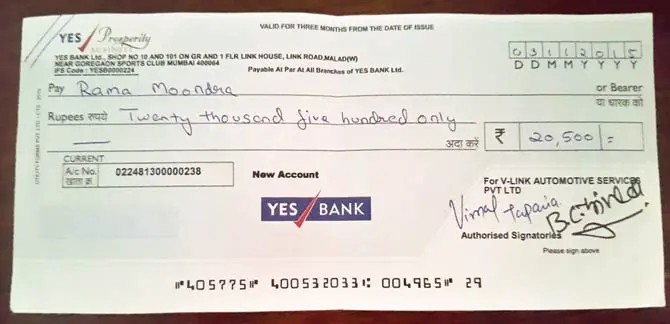 VALID FOR THREE MONTHS FROM THE DATE OF ISSUE
YES Prosperity
BUSINESS
YES BANK Ltd., SHOP NO 10 AND 101 ON GR AND 1 FLR LINK HOUSE, LINK ROAD,MALAD(W)
NEAR GOREGAON SPORTS CLUB MUMBAI 400064
IFS Code : YESB0000224
Payable At Par At All Branches of YES BANK Ltd.
03112015
D D M M Y Y Y Y
Pay Rama Moondra or Bearer
या धारक को
Rupees रुपये Twenty thousand five hundred only
अदा करें ₹ 20,500/=
CURRENT
A/c No. 022481300000238
खाता क्र
New Account
YES BANK
For V-LINK AUTOMOTIVE SERVICES
PVT LTD
Vimal Taparia
Authorised Signatories
Please sign above
⑈405775⑈ 400532033⑆ 004965⑈ 29